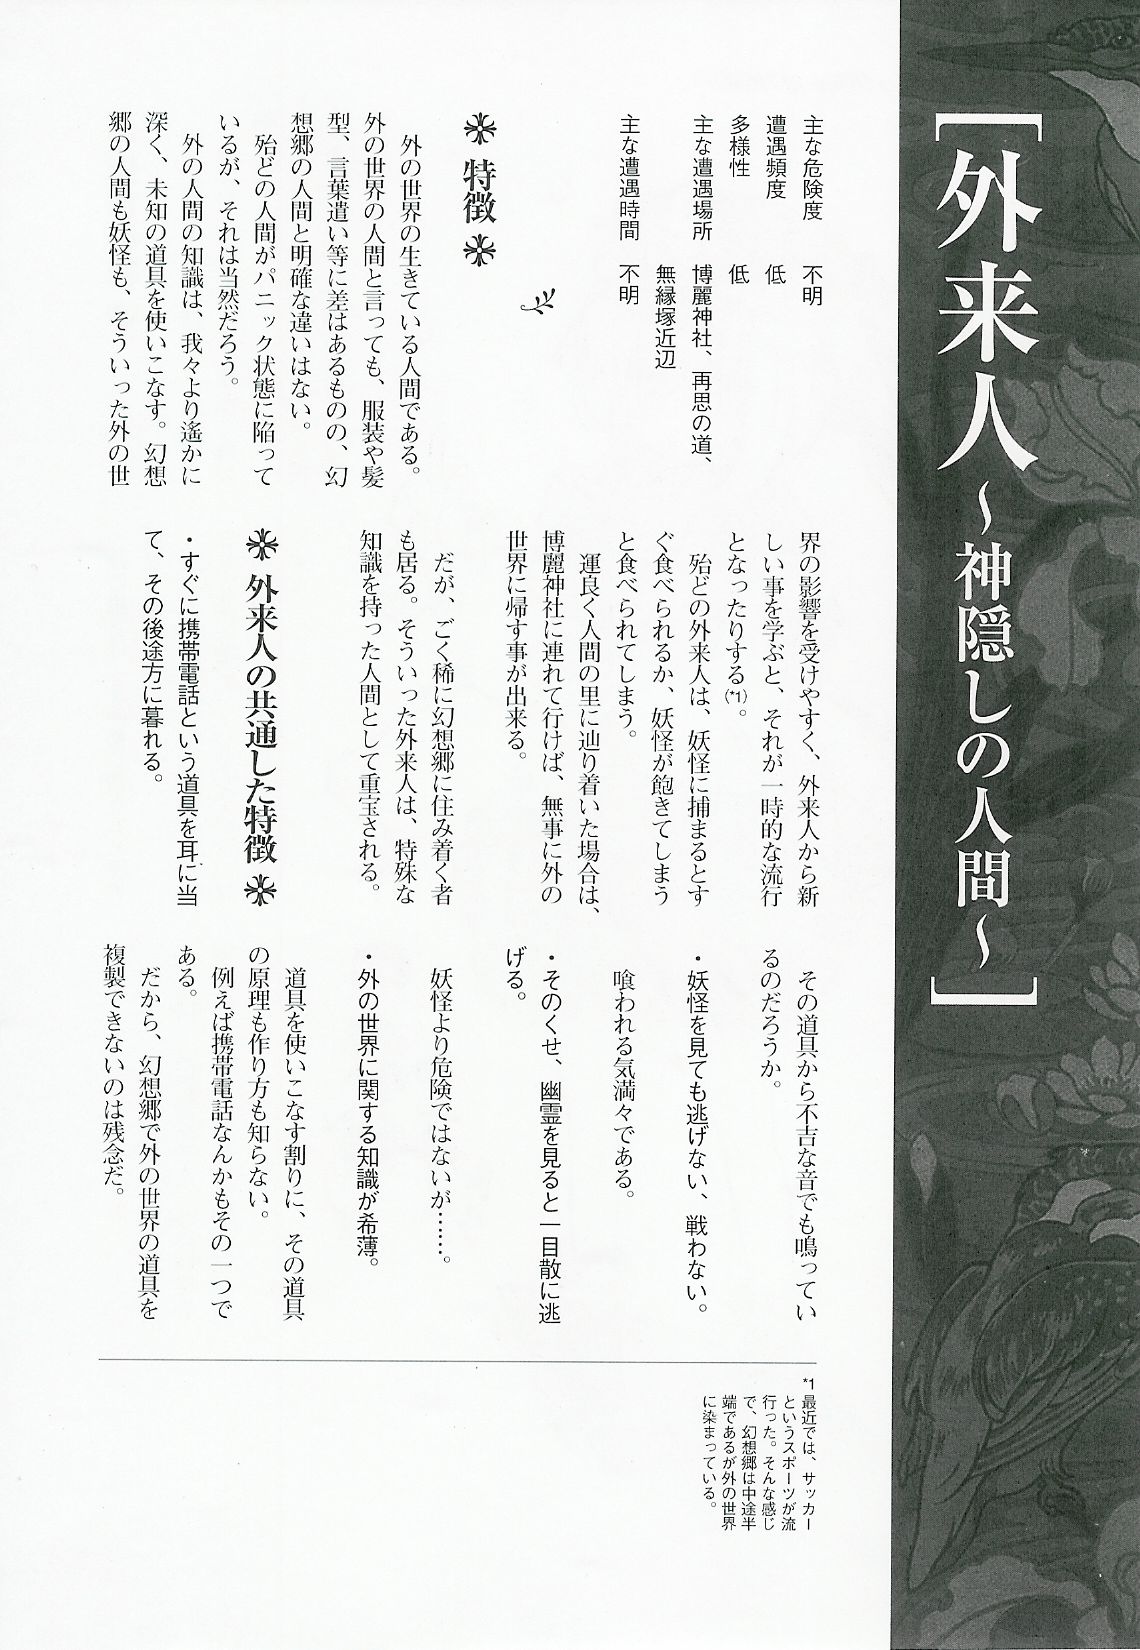 ［外来人～神隠しの人間～］
主な危険度　不明
遭遇頻度　低
多様性　低
主な遭遇場所　博麗神社、再思の道、
無縁塚近辺
主な遭遇時間　不明
特徴
外の世界の生きている人間である。
外の世界の人間と言っても、服装や髪
型、言葉遣い等に差はあるものの、幻
想郷の人間と明確な違いはない。
殆どの人間がパニック状態に陥って
いるが、それは当然だろう。
外の人間の知識は、我々より遙かに
深く、未知の道具を使いこなす。幻想
郷の人間も妖怪も、そういった外の世
界の影響を受けやすく、外来人から新
しい事を学ぶと、それが一時的な流行
となったりする(*1)。
殆どの外来人は、妖怪に捕まるとす
ぐ食べられるか、妖怪が飽きてしまう
と食べられてしまう。
運良く人間の里に辿り着いた場合は、
博麗神社に連れて行けば、無事に外の
世界に帰す事が出来る。
だが、ごく稀に幻想郷に住み着く者
も居る。そういった外来人は、特殊な
知識を持った人間として重宝される。
外来人の共通した特徴
・すぐに携帯電話という道具を耳に当
て、その後途方に暮れる。
その道具から不吉な音でも鳴ってい
るのだろうか。
・妖怪を見ても逃げない、戦わない。
喰われる気満々である。
・そのくせ、幽霊を見ると一目散に逃
げる。
妖怪より危険ではないが……。
・外の世界に関する知識が希薄。
道具を使いこなす割りに、その道具
の原理も作り方も知らない。
例えば携帯電話なんかもその一つで
ある。
だから、幻想郷で外の世界の道具を
複製できないのは残念だ。
*1 最近では、サッカー
というスポーツが流
行った。そんな感じ
で、幻想郷は中途半
端であるが外の世界
に染まっている。